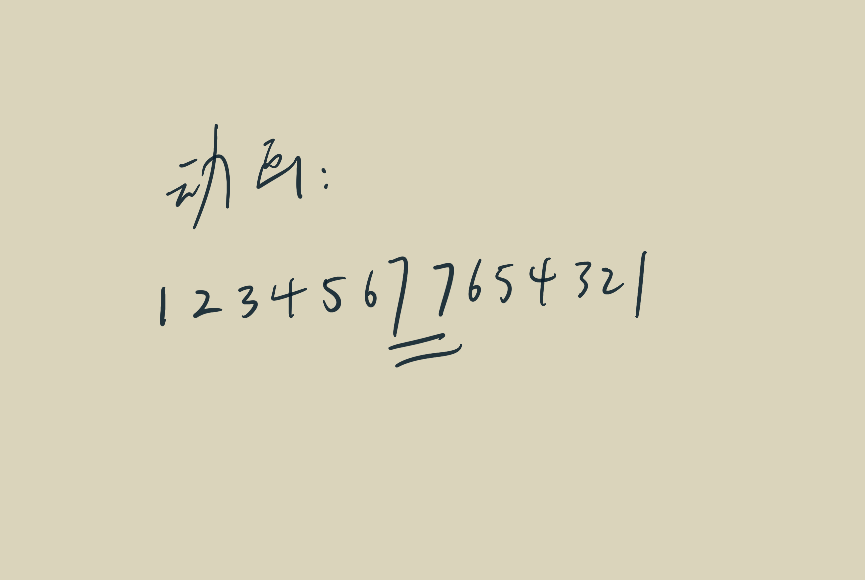 动画:
1 2 3 4 5 6 7 7 6 5 4 3 2 1